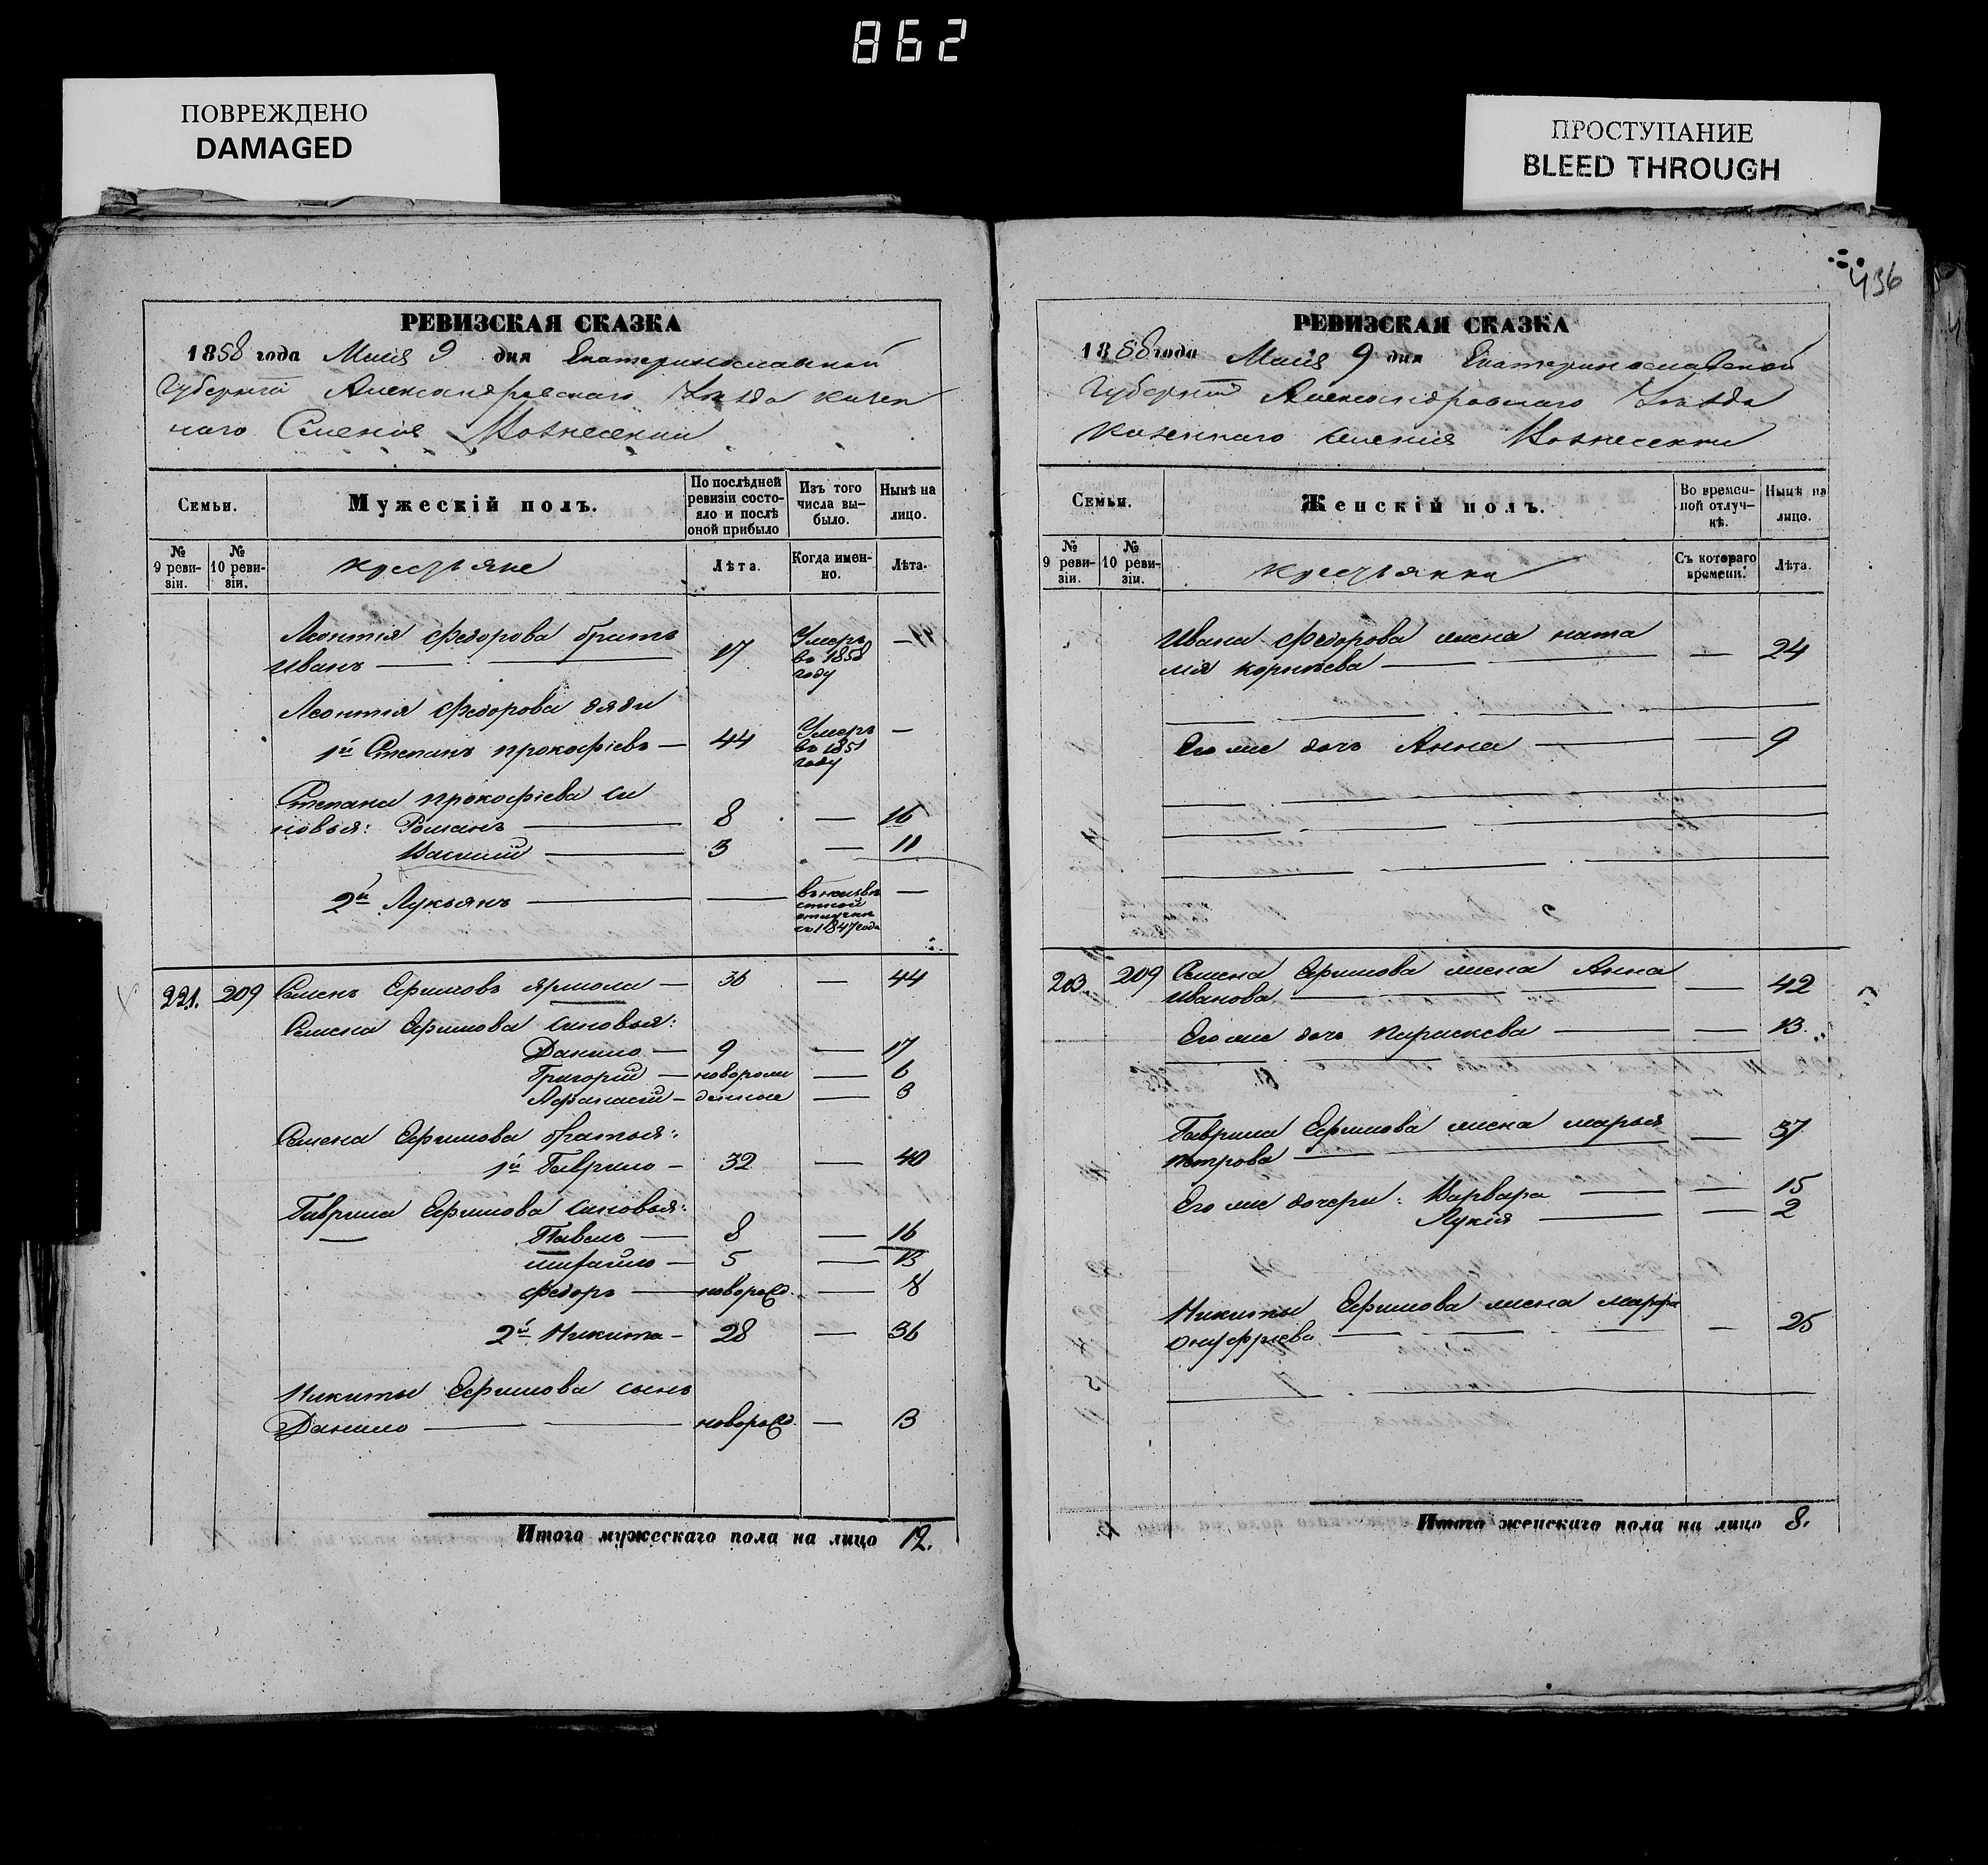 862
ПОВРЕЖДЕНО
DAMAGED
ПРОСТУПАНИЕ
BLEED THROUGH
РЕВИЗСКАЯ СКАЗКА
1858 года Маія 9 дня Екатеринославской
Губерніи Александровскаго Уѣзда казен
наго Селенія Вознесенки
Семьи.
Мужескій полъ.
По послѣдней ревизіи состояло и послѣ оной прибыло
Изъ того числа выбыло.
Нынѣ на лицо.
№ 9 ревизіи.
№ 10 ревизіи.
крестьяне
Лѣта.
Когда именно.
Лѣта.
Леонтія Федорова братъ
Иванъ — 17 Умеръ въ 1858 году —
Леонтія Федорова дяди
1й Степанъ Прокофіевъ — 44 Умеръ въ 1851 году —
Степана Прокофіева сы
новья: Романъ — 8 — 16
Василій — 3 — 11
2й Лукьянъ — — въ неизвѣстной отлучкѣ съ 1847 года —
221. 209 Семенъ Ефимовъ Ярмола — 36 — 44
Семена Ефимова сыновья:
Данило — 9 — 17
Григорій — новорож — 6
Афанасій — денные — 3
Семена Ефимова братья:
1й Гаврило — 32 — 40
Гаврила Ефимова сыновья:
Павелъ — 8 — 16
Михайло — 5 — 13
Федоръ — новорожд. — 8
2й Никита — 28 — 36
Никиты Ефимова сынъ
Данило — новорожд. — 3
Итого мужескаго пола на лицо 12.
436
РЕВИЗСКАЯ СКАЗКА
1858 года Маія 9 дня Екатеринославской
Губерніи Александровскаго Уѣзда
Казеннаго селенія Вознесенки
Семьи.
Женскій полъ.
Во временной отлучкѣ.
Нынѣ на лицо.
№ 9 ревизіи.
№ 10 ревизіи.
крестьянки
Съ котораго времени.
Лѣта.
Ивана Федорова жена Ната
лія Корнѣева — — 24
Его же дочь Анна — — 9
203. 209 Семена Ефимова жена Анна
Иванова — — 42
Его же дочь Параскева — — 13.
Гаврила Ефимова жена Марья
Петрова — — 37
Его же дочери: Варвара — — 15
Лукія — — 2
Никиты Ефимова жена Марфа
Онуфріева — — 25
Итого женскаго пола на лицо 8.